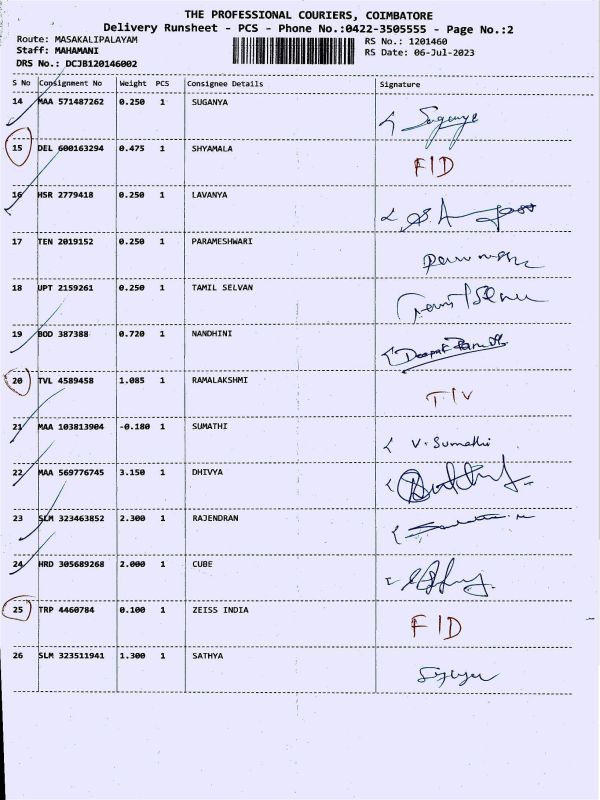 THE PROFESSIONAL COURIERS, COIMBATORE
Delivery Runsheet - PCS - Phone No.:0422-3505555 - Page No.:2
Route: MASAKALIPALAYAM RS No.: 1201460
Staff: MAHAMANI RS Date: 06-Jul-2023
DRS No.: DCJB120146002
S No Consignment No Weight PCS Consignee Details Signature
14 MAA 571487262 0.250 1 SUGANYA Suganya
15 DEL 600163294 0.475 1 SHYAMALA F/D
16 HSR 2779418 0.250 1 LAVANYA
17 TEN 2019152 0.250 1 PARAMESHWARI
18 UPT 2159261 0.250 1 TAMIL SELVAN
19 BOD 387388 0.720 1 NANDHINI
20 TVL 4589458 1.085 1 RAMALAKSHMI T/V
21 MAA 103813904 -0.180 1 SUMATHI V. Sumathi
22 MAA 569776745 3.150 1 DHIVYA
23 SLM 323463852 2.300 1 RAJENDRAN
24 HRD 305689268 2.000 1 CUBE
25 TRP 4460784 0.100 1 ZEISS INDIA F/D
26 SLM 323511941 1.300 1 SATHYA